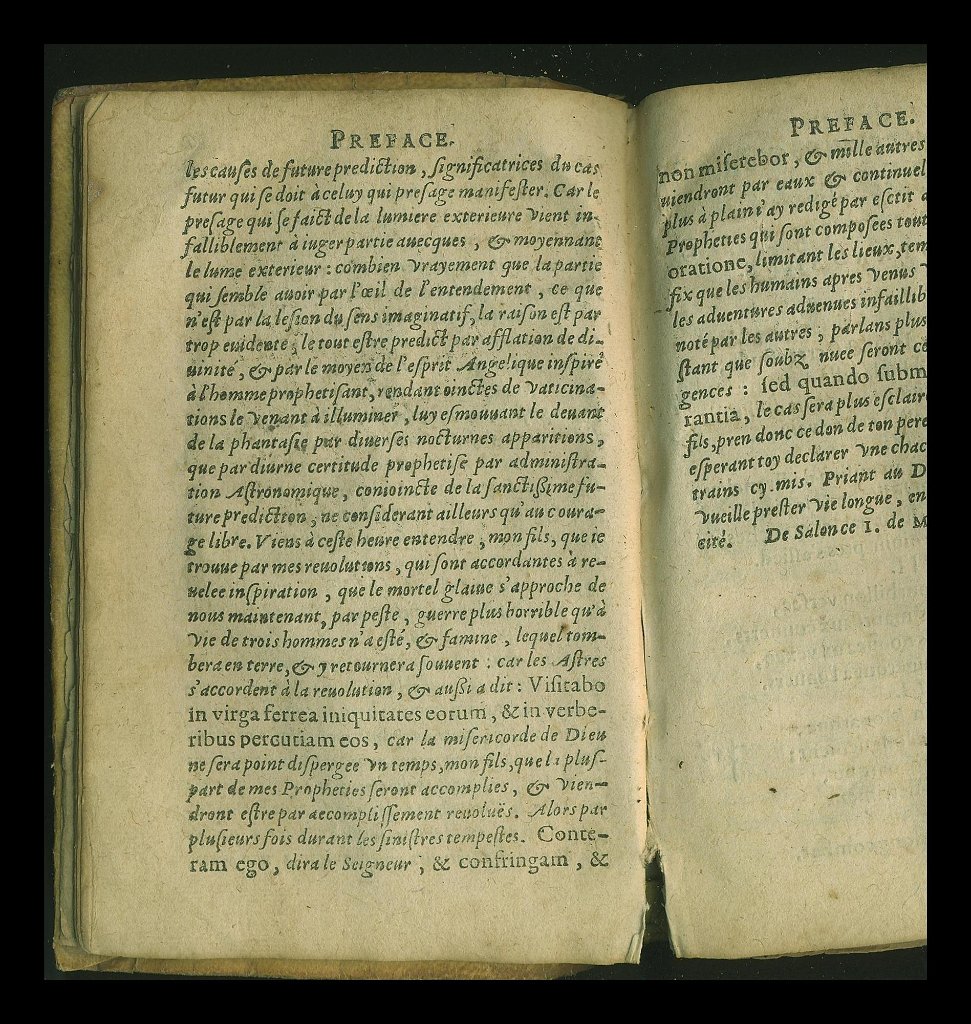 PREFACE.
les causes de future prediction, significatrices du cas
futur qui se doit à celuy qui presage manifester. Car le
presage qui se faict de la lumiere exterieure vient in-
falliblement à iuger partie auecques, & moyennant
le lume exterieur : combien vrayement que la partie
qui semble auoir par l'œil de l'entendement, ce que
n'est par la lesion du sens imaginatif, la raison est par
trop euidente, le tout estre predict par afflation de di-
uinité, & par le moyen de l'esprit Angelique inspiré
à l'homme prophetisant, rendant oinctes de vaticina-
tions le venant à illuminer, luy esmouuant le deuant
de la phantasie par diuerses nocturnes apparitions,
que par diurne certitude prophetise par administra-
tion Astronomique, conioincte de la sanctissime fu-
ture prediction, ne considerant ailleurs qu'au coura-
ge libre. Viens à ceste heure entendre, mon fils, que ie
trouue par mes reuolutions, qui sont accordantes à re-
uelee inspiration, que le mortel glaiue s'approche de
nous maintenant, par peste, guerre plus horrible qu'à
vie de trois hommes n'a esté, & famine, lequel tom-
bera en terre, & y retournera souuent : car les Astres
s'accordent à la reuolution, & aussi a dit : Visitabo
in virga ferrea iniquitates eorum, & in verbe-
ribus percutiam eos, car la misericorde de Dieu
ne sera point dispergee vn temps, mon fils, que li plus-
part de mes Propheties seront accomplies, & vien-
dront estre par accomplissement reuoluës. Alors par
plusieurs fois durant les sinistres tempestes. Conte-
ram ego, dira le Seigneur, & confringam, &
PREFACE.
non miserebor, & mille autres
uiendront par eaux & continuel
plus à plain i'ay redigé par escrit
Propheties qui sont composees tout
oratione, limitant les lieux, tem
fix que les humains apres venus
les aduentures aduenues infaillib
noté par les autres, parlans plus
stant que soubz nuee seront
gences : sed quando subm
rantia, le cas sera plus esclair
fils, pren donc ce don de ton pere
esperant toy declarer vne chac
trains cy mis. Priant au D
vueille prester vie longue, en
cité. De Salon ce 1. de M